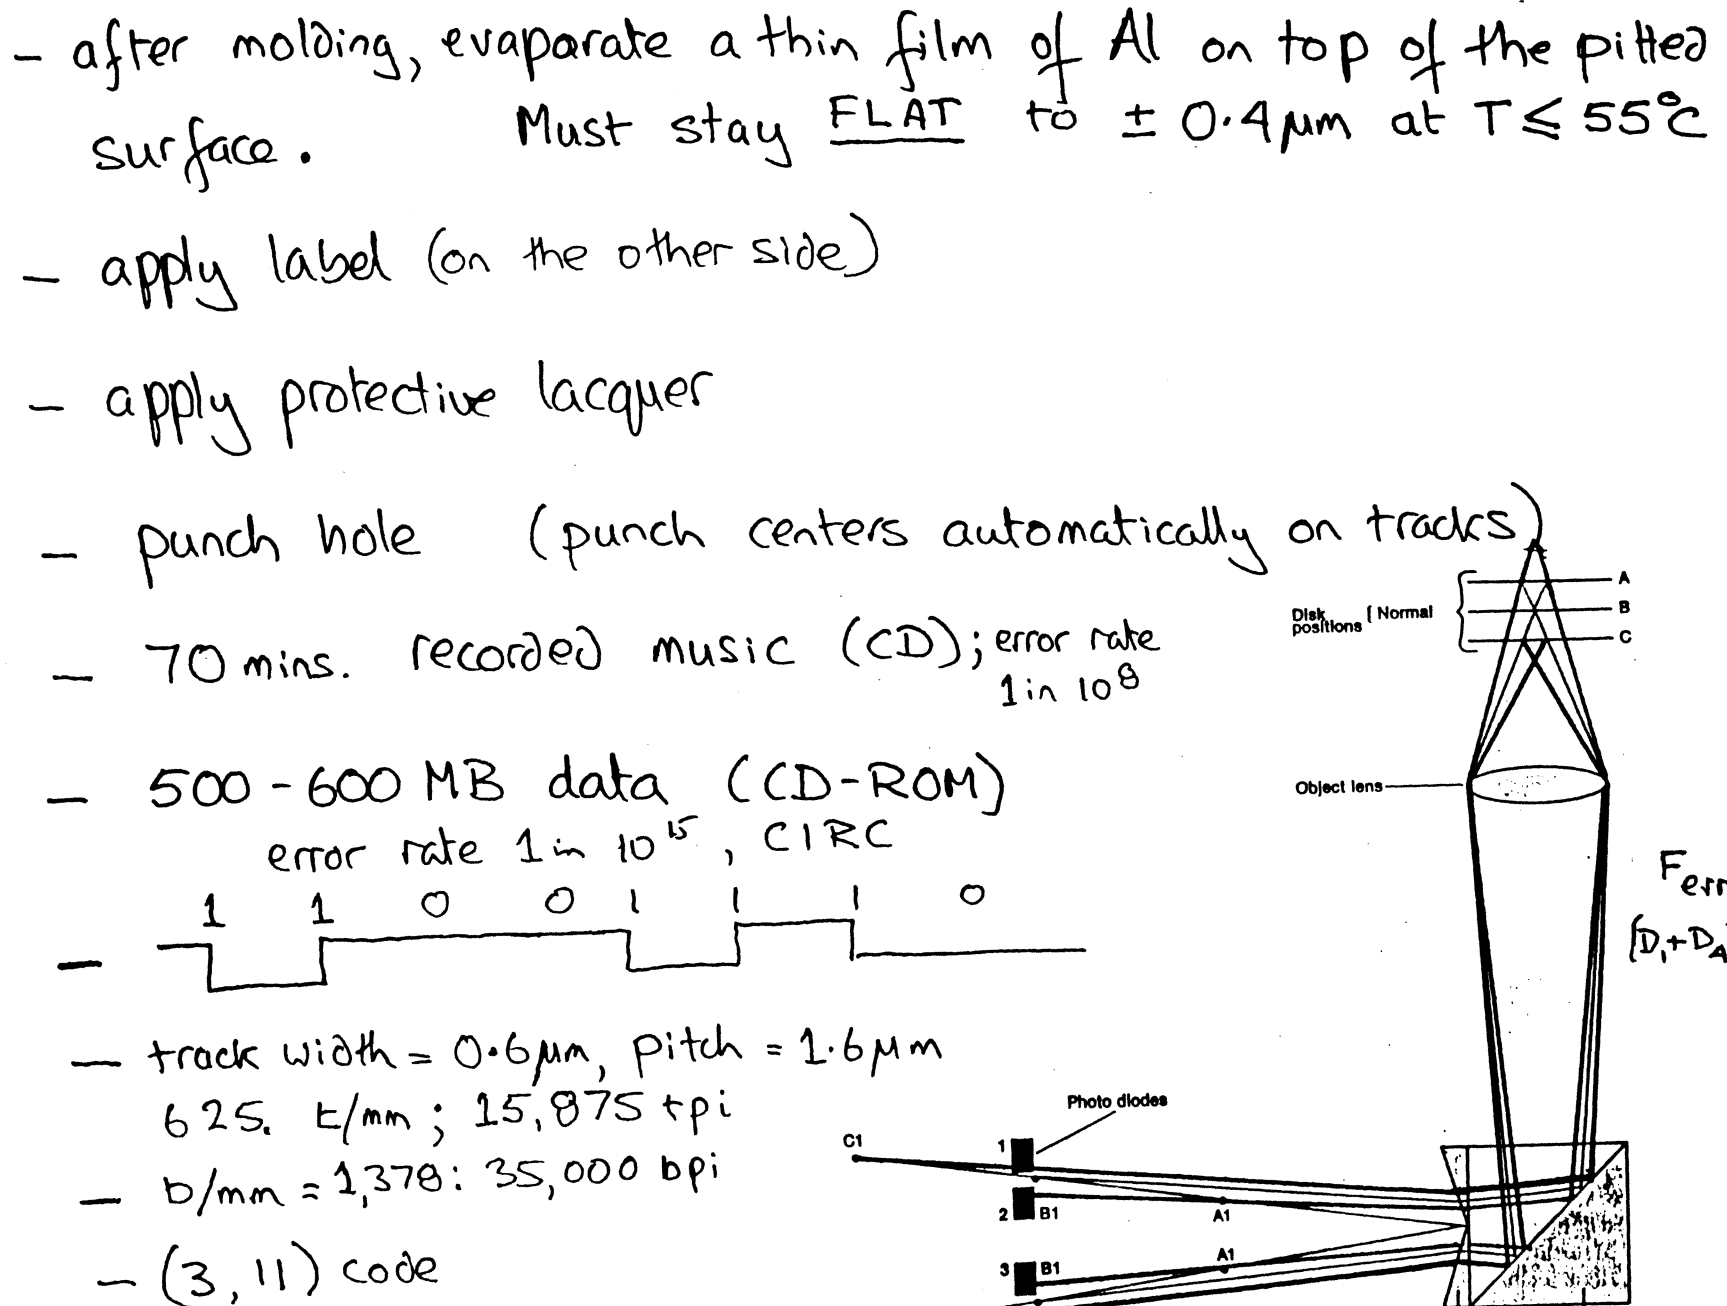 - after molding, evaporate a thin film of Al on top of the pitted
surface. Must stay FLAT to ± 0.4 µm at T ≤ 55°C
- apply label (on the other side)
- apply protective lacquer
- punch hole (punch centers automatically on tracks)
- 70 mins. recorded music (CD); error rate
1 in 10⁸
- 500-600 MB data (CD-ROM)
error rate 1 in 10¹⁵, CIRC
1 1 0 0 1 1 1 0
-
- track width = 0.6 µm, pitch = 1.6 µm
625. t/mm; 15,875 tpi
- b/mm = 1,378: 35,000 bpi
- (3, 11) code
Disk
positions { Normal
A
B
C
Object lens
Ferr
(D₁+DA
Photo diodes
C1
1
2 B1 A1
3 B1 A1